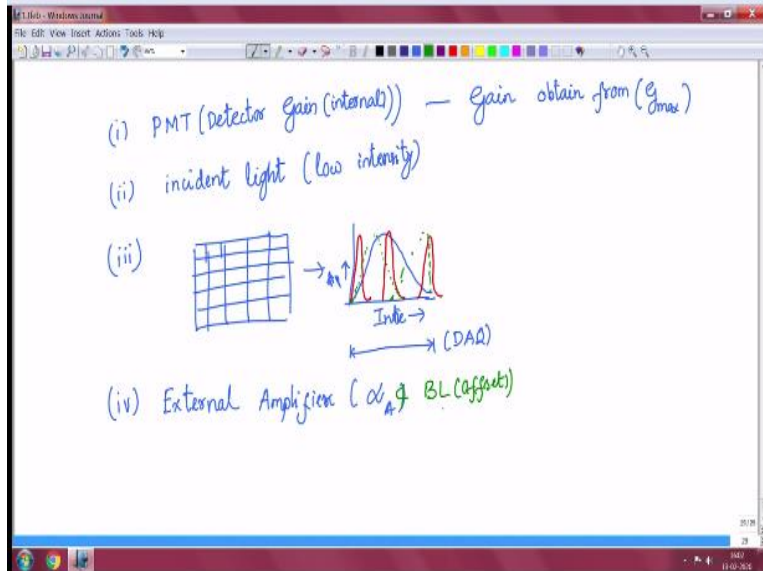 File Edit View Insert Actions Tools Help
(i) PMT (Detector Gain (internal)) — Gain obtain from (Gmax)
(ii) incident light (low intensity)
(iii)
(DAQ)
(iv) External Amplifier (α_A & BL (offset))
29/29
29
1602
13-02-2020